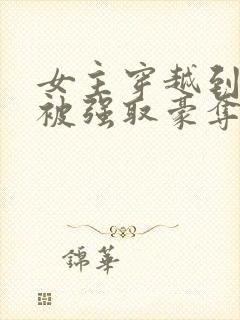 女主穿越到
被强取豪夺
錦華